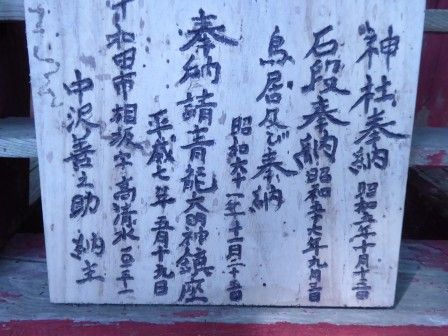 神社奉納 昭和五年十月十三日
石段奉納 昭和三十七年九月三日
鳥居及び奉納
昭和六十一年十一月二十三日
奉納請青龍大明神鎮座
平成七年五月十九日
十和田市相坂字高清水
中沢喜之助納主